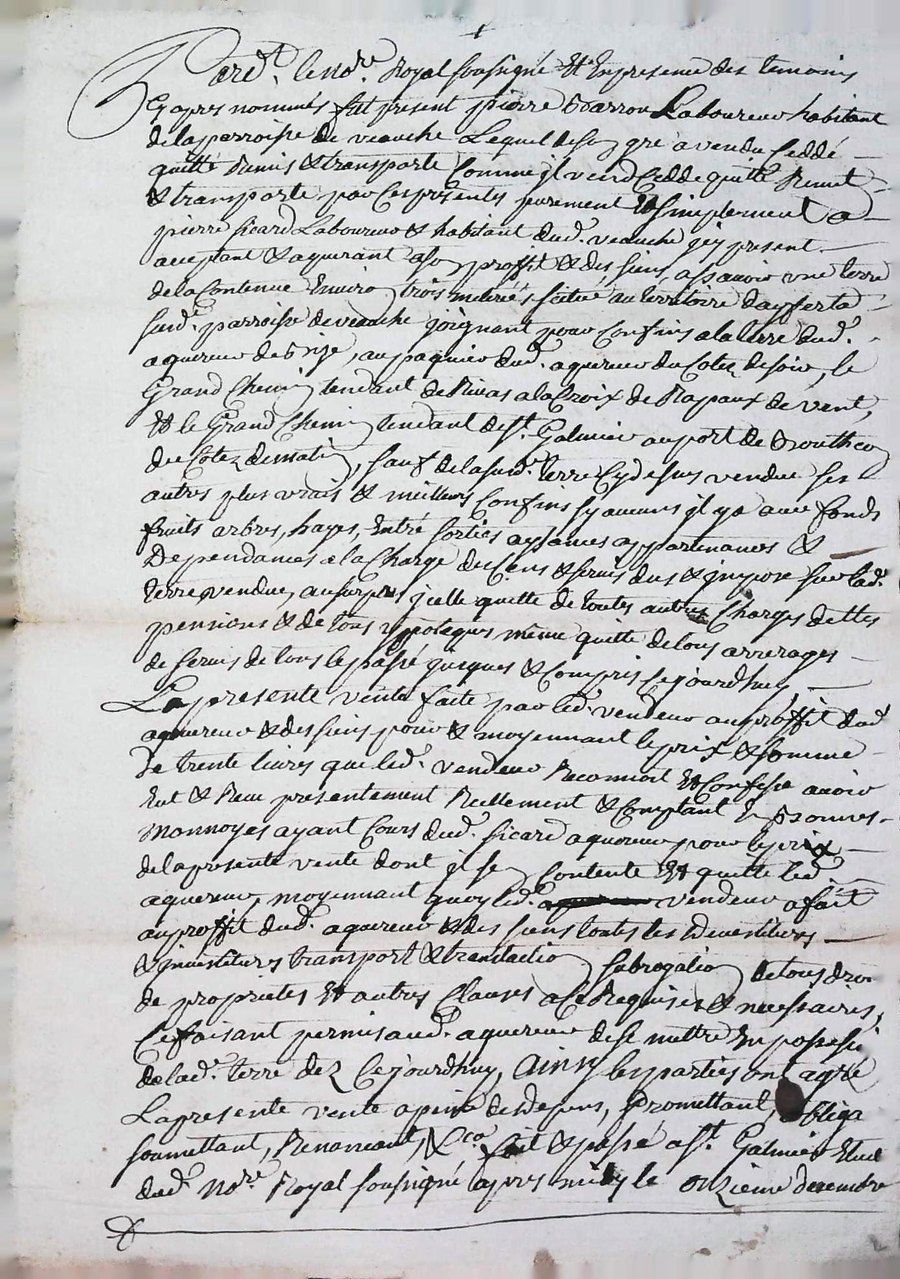 Pard.t le no.re Royal soussigné Et En presence des temoins
Cy apres nommés fut present pierre Barrou Laboureur habitant
de la parroisse de veauche Lequel de son gré à vendu ceddé
quitté Remis & transporté Comme il vend Cedde quitte Remet
& transporte par Ces presentes purement Et simplement a
pierre sicard Laboureur & habitant dud. veauche jcy present
acceptant & aquerant a son proffit & des siens assavoir une terre
de la Contenue Environ trois meterés scitué au territoire
susd.e parroisse de veauche joignant pour Confins a la terre dud.
aquereur de bize, au paquier dud. aquereur du Cotez de soir, le
Grand Chemin tendant de Rivas a la Croix de Rapaux de vent,
Et le Grand Chemin tendant de S.t Galmier au port de Boutheon
du Cotez de matin, sauf de la susd.e terre Cy dessus vendue ses
autres plus vrais & meilleurs Confins sy aucuns jl y a avec fonds
fruits arbres, hayes, Entré sorties aysances appartenances &
Dependances a la Charge des Cens & servis dus & jmposé sur lad.
terre vendue, au surplus jcelle quitte de toutes autres Charges dettes
pensions & de tous ypoteques même quitte de tous arrerages
de servis de tous le passé jusques & Compris Cejourdhuy
La presente vente faite par led. vendeur au proffit dud.
aquereur & des siens pour & moyennant le prix & somme
de trente livres que led. vendeur Reconnoit Et Confesse avoir
Eut & Receu presentement Reellement & Comptant En Bonnes
Monnoyes ayant Cours dud. sicard aquereur pour le prix
de la presente vente dont jl se Contente Et quitte led.
aquereur, moyennant quoy led. vendeur a fait
au proffit dud. aquereur & des siens toutes les Devestitures
& jnvestitures transport & translation subrogation de tous droi
de proprietes Et autres Clauses a Ce Requises & necessaires,
Ce faisant permis aud. aquereur de se mettre En possessi
de lad. terre dez Cejourdhuy, Ainsy les parties ont agréé
La presente vente a peine de Depens, Promettant, obligea
soumettant, Renoncant, &Ca fait & passé a S.t Galmier Etude
dud. No.re Royal soussigné apres midy le onzieme decembre